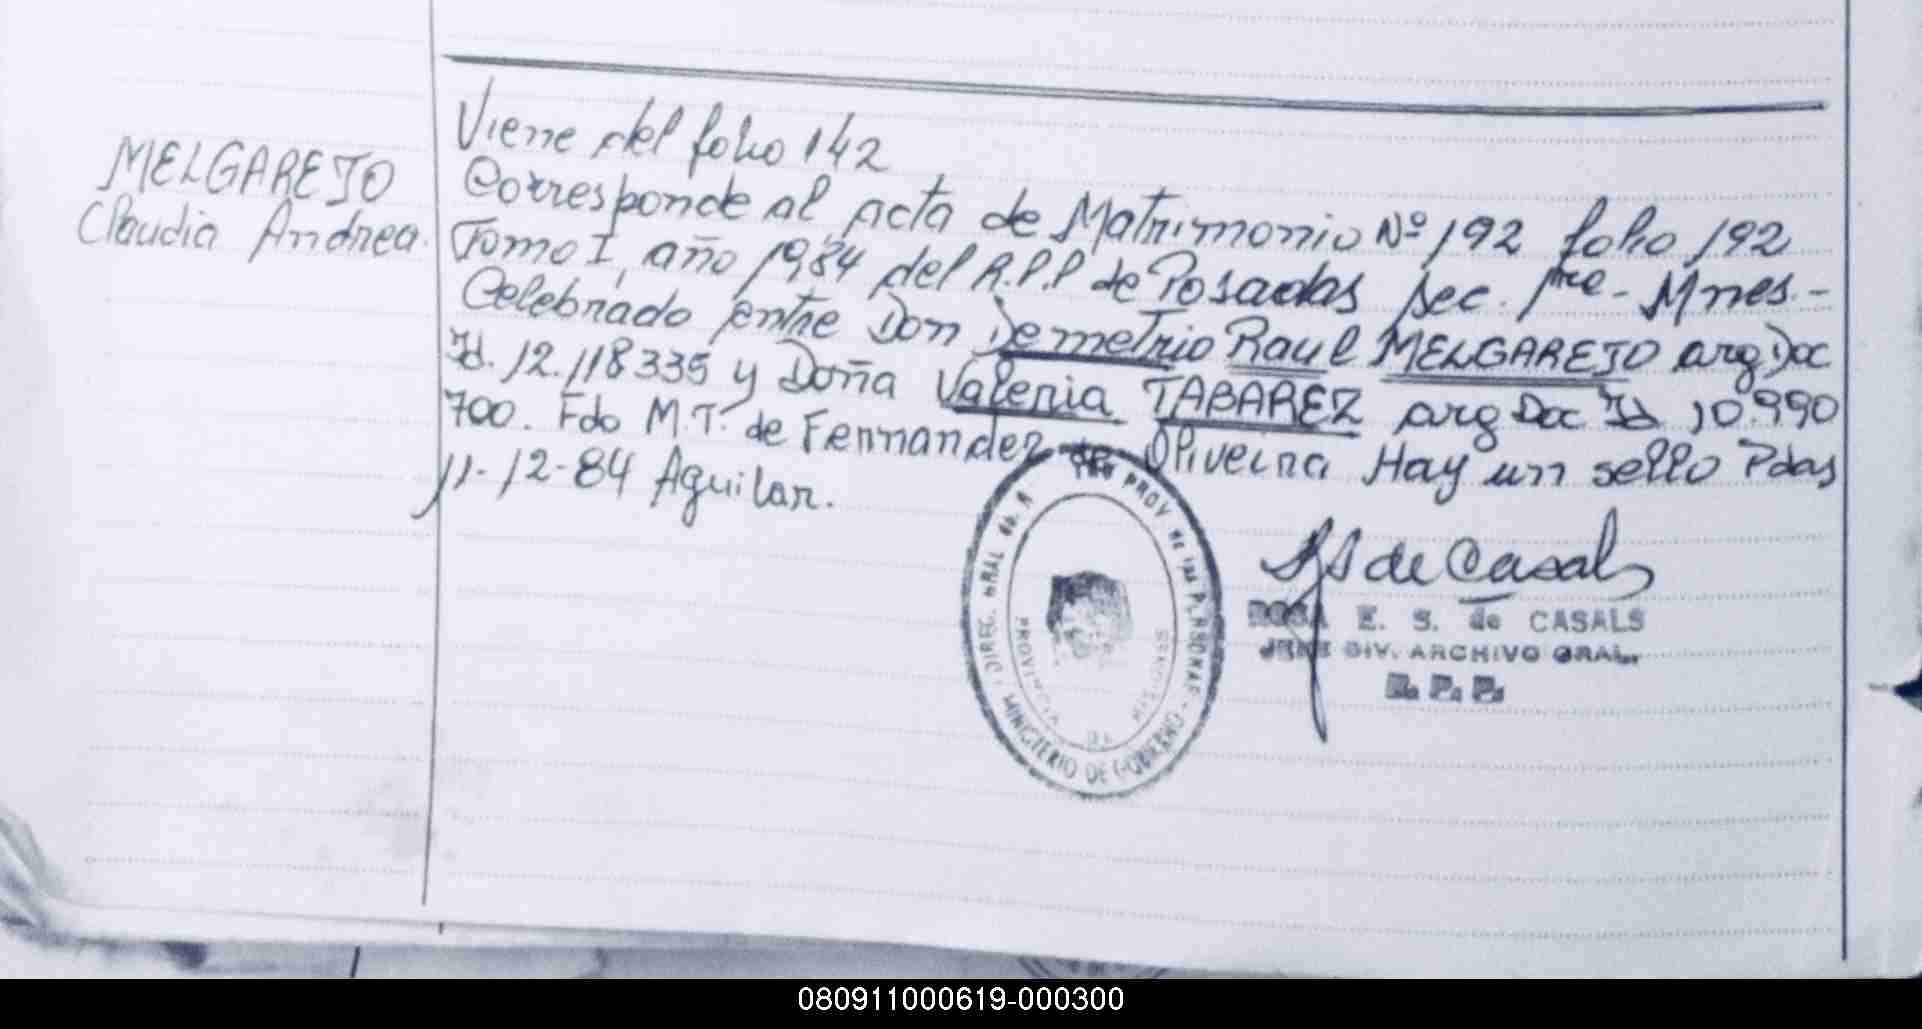 MELGAREJO
Claudia Andrea.
Viene del folio 142
Corresponde al acta de Matrimonio Nº 192 folio 192
Tomo I, año 1984 del R.P.P de Posadas sec. Mnes.-
Celebrado entre Don Demetrio Raul MELGAREJO arg Doc
Id. 12.118335 y Doña Valeria TABAREZ arg Doc Id 10.990
700. Fdo M.T. de Fernandez Oliveira Hay un sello Pdas
11-12-84 Aguilar.
de Casals
ROSA E. S. de CASALS
JEFE DIV. ARCHIVO GRAL.
R. P. P.
DIREC. GRAL PROV. de las PERSONAS - MINISTERIO DE GOBIERNO
PROVINCIA DE MISIONES
080911000619-000300